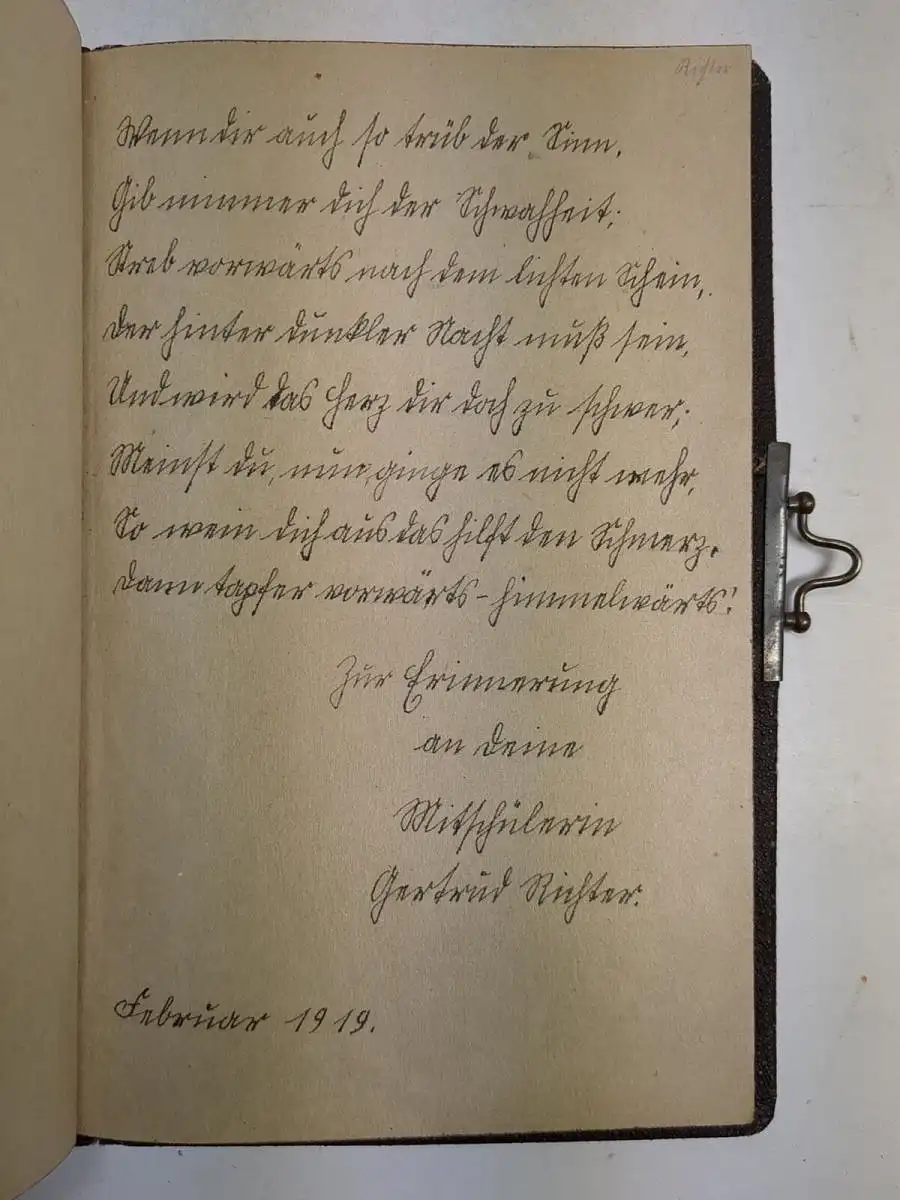 Richter
Wenn dir auch so trüb der Sinn,
Gib nimmer dich der Schwahheit;
Streb vorwärts nach dem lichten Schein,
Der hinter dunkler Nacht muß sein,
Und wird das Herz dir doch zu schwer;
Meinst du, nun ginge es nicht mehr,
So wein dich aus das hilft den Schmerz.
Dann tapfer vorwärts - himmelwärts!
Zur Erinnerung
an Deine
Mitschülerin
Gertrud Richter.
Februar 1919.